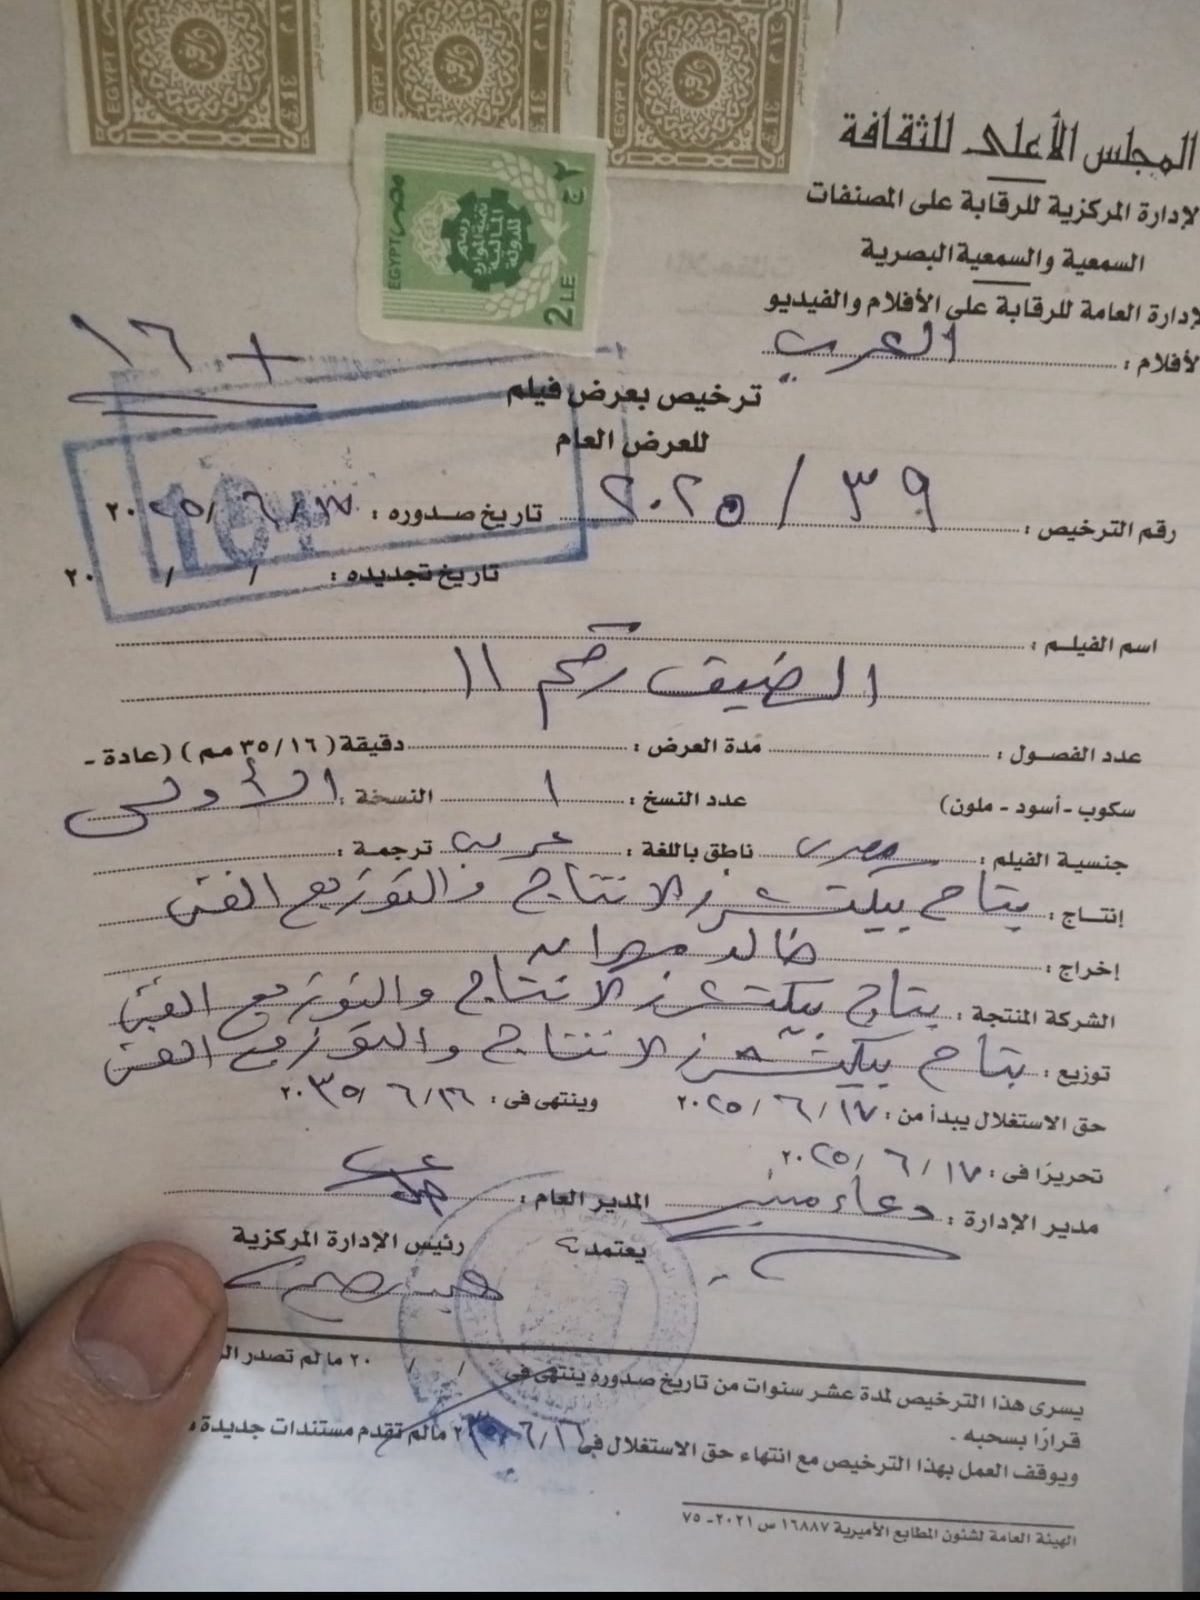 EGYPT مصر
EGYPT مصر
EGYPT مصر
٢ ج
مصر EGYPT
رسم تنمية الموارد المالية للدولة
2 LE
المجلس الأعلى للثقافة
لإدارة المركزية للرقابة على المصنفات
السمعية والسمعية البصرية
لإدارة العامة للرقابة على الأفلام والفيديو
لأفلام : العربي
+ ١٦
ترخيص بعرض فيلم
للعرض العام
رقم الترخيص : ٣٩ / ٢٠٢٥ تاريخ صدوره : ١٧ / ٦ / ٢٠٢٥
104
تاريخ تجديده : / / ٢٠
اسم الفيلم :
الضيف رقم ١١
عدد الفصول : مدة العرض : دقيقة ( ٣٥/١٦ مم ) (عادة -
سكوب - أسود - ملون) عدد النسخ : ١ النسخة : الأولى
جنسية الفيلم : مصرى ناطق باللغة : عربى ترجمة :
إنتاج : بتاح بيكتشرز لانتاج والتوزيع الفنى
إخراج : خالد مهران
الشركة المنتجة : بتاح بيكتشرز لانتاج والتوزيع الفنى
توزيع : بتاح بيكتشرز لانتاج والتوزيع الفنى
حق الاستغلال يبدأ من : ١٧ / ٦ / ٢٠٢٥ وينتهى فى : ١٦ / ٦ / ٢٠٣٥
تحريرًا فى : ١٧ / ٦ / ٢٠٢٥
مدير الإدارة : دعاء منير المدير العام :
يعتمد رئيس الإدارة المركزية
يسرى هذا الترخيص لمدة عشر سنوات من تاريخ صدوره ينتهى فى / / ٢٠ مالم تصدر
قرارًا بسحبه .
ويوقف العمل بهذا الترخيص مع انتهاء حق الاستغلال فى ١٦ / ٦ / مالم تقدم مستندات جديدة
الهيئة العامة لشئون المطابع الأميرية ١٦٨٨٧ س ٢٠٢١ - ٧٥